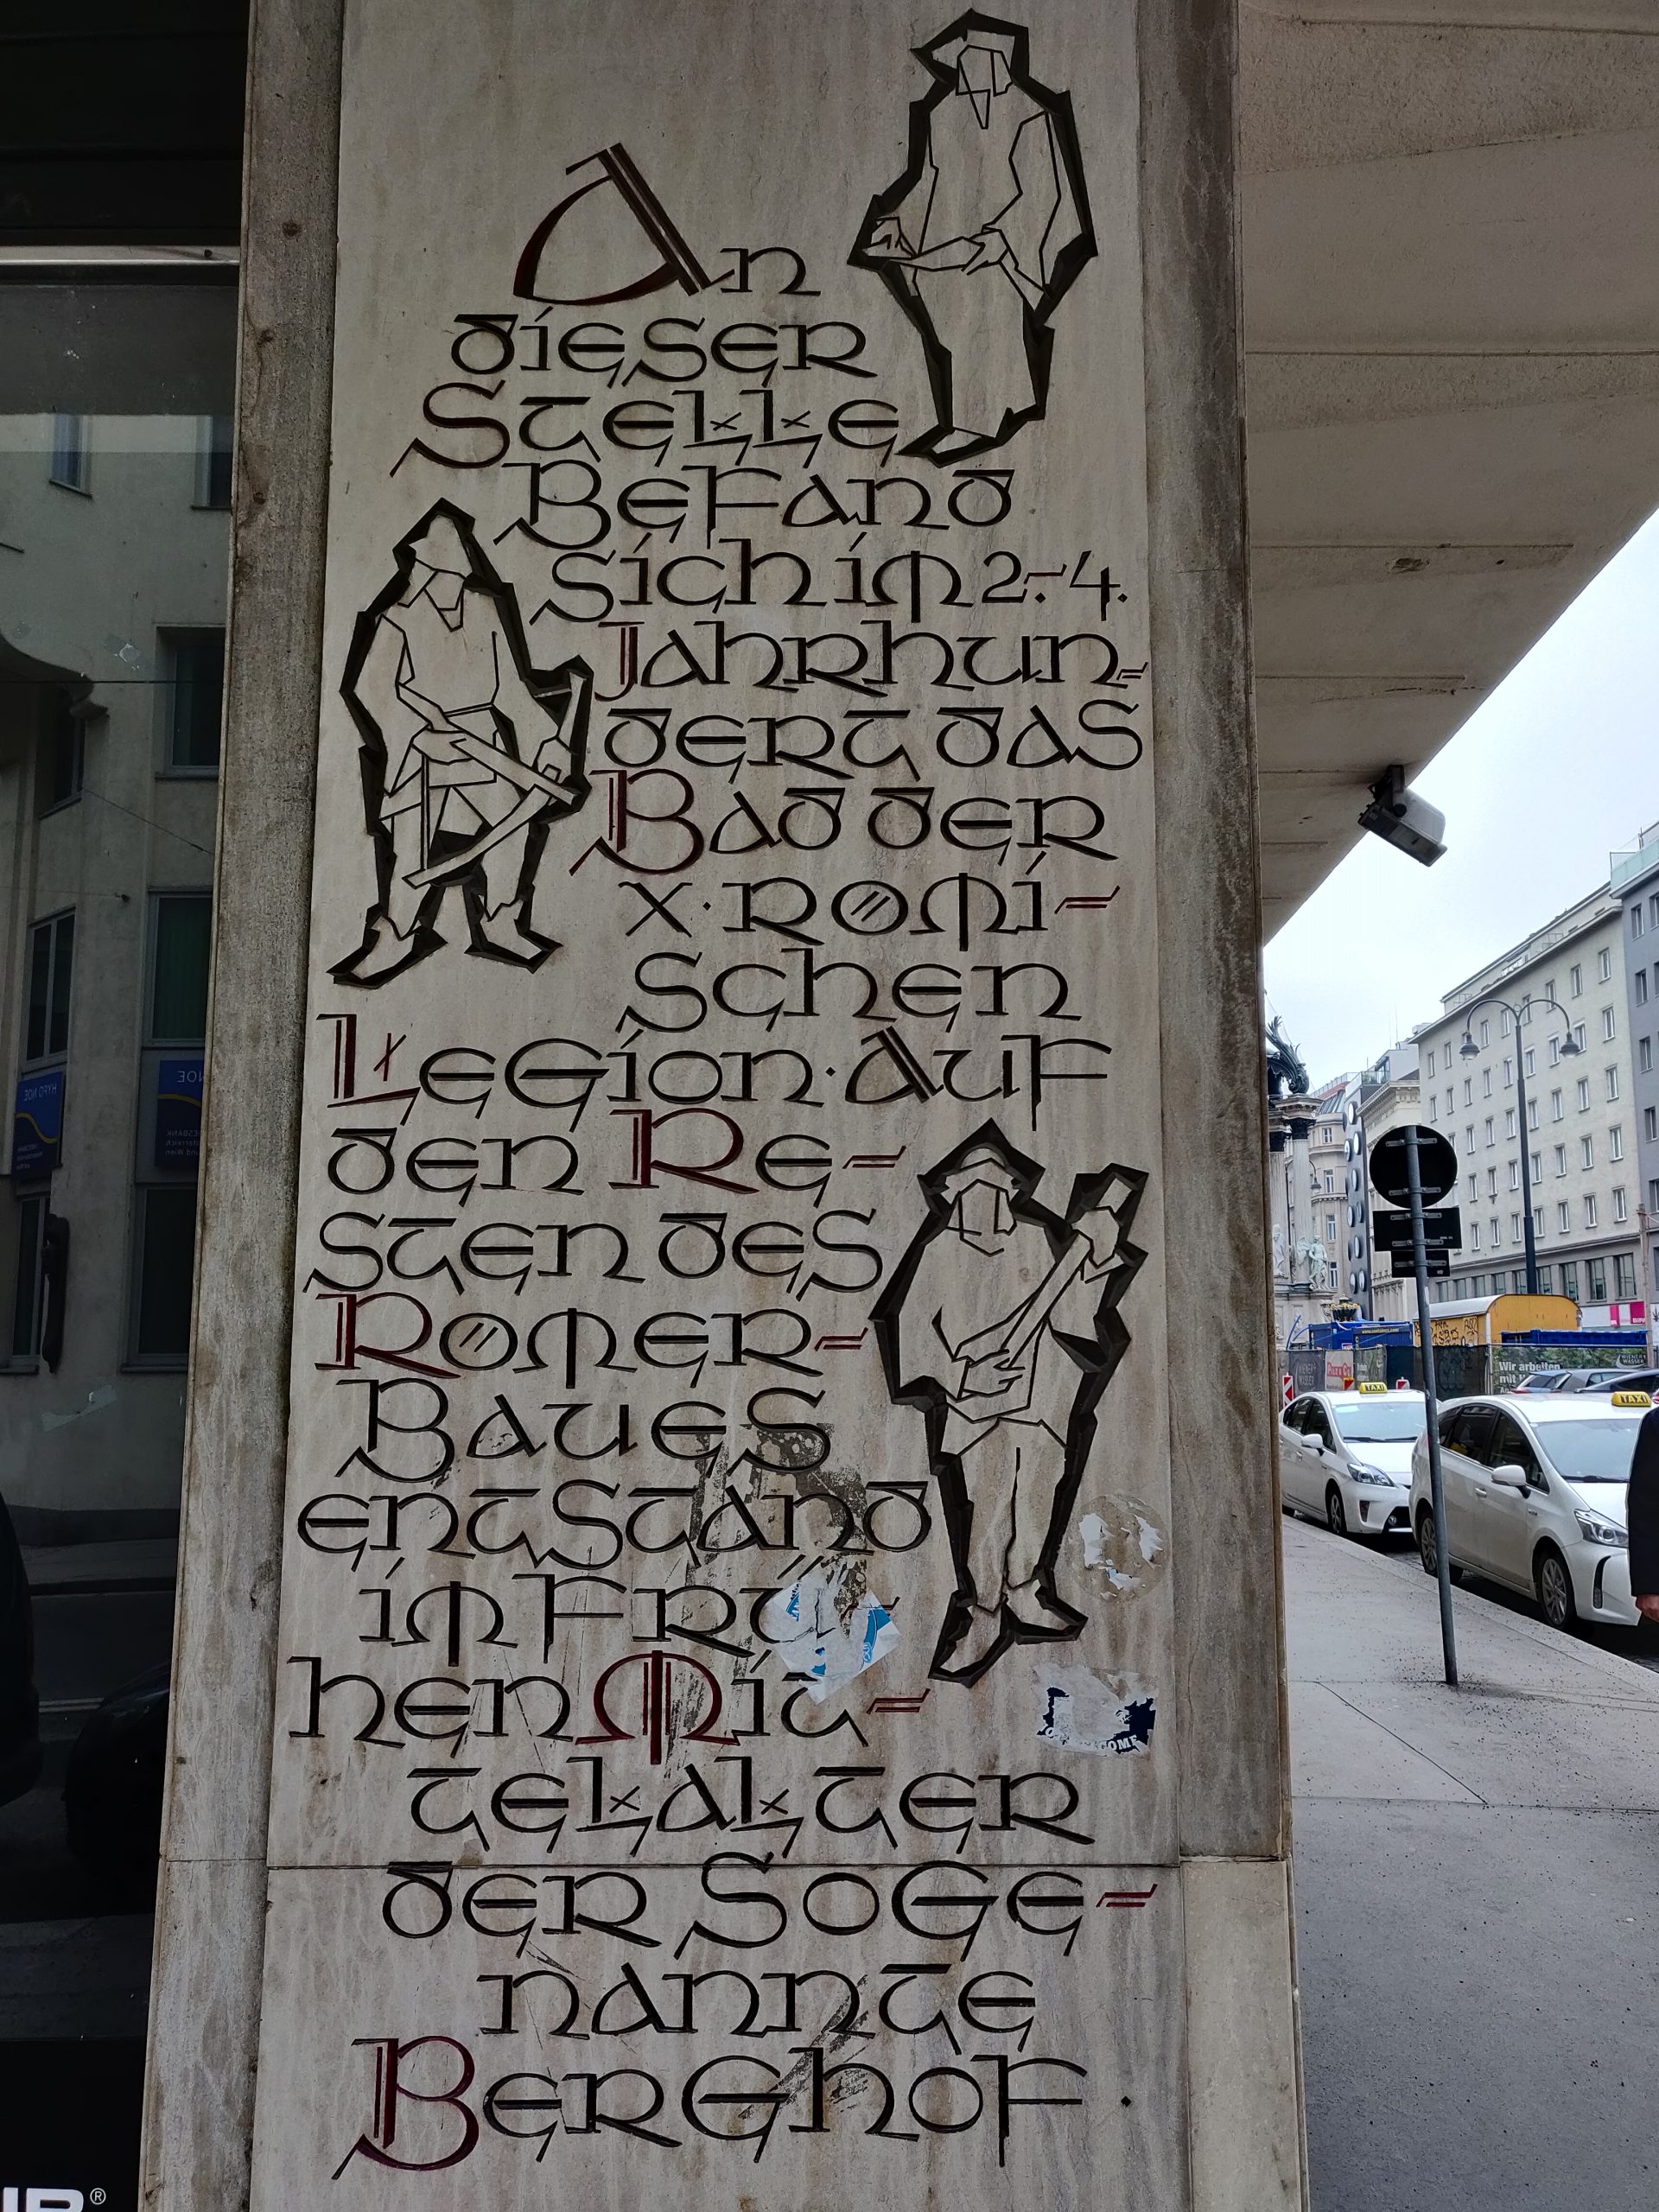 An
dieser
Stelle
Befand
sich im 2.-4.
Jahrhun=
dert das
Bad der
X. Römi=
schen
Legion. Auf
den Re=
sten des
Römer=
Baues
entstand
im Frü=
hen Mit=
telalter
der Soge=
nannte
Berghof.
HYPO NOE
TAXI
TAXI
Wir arbeiten